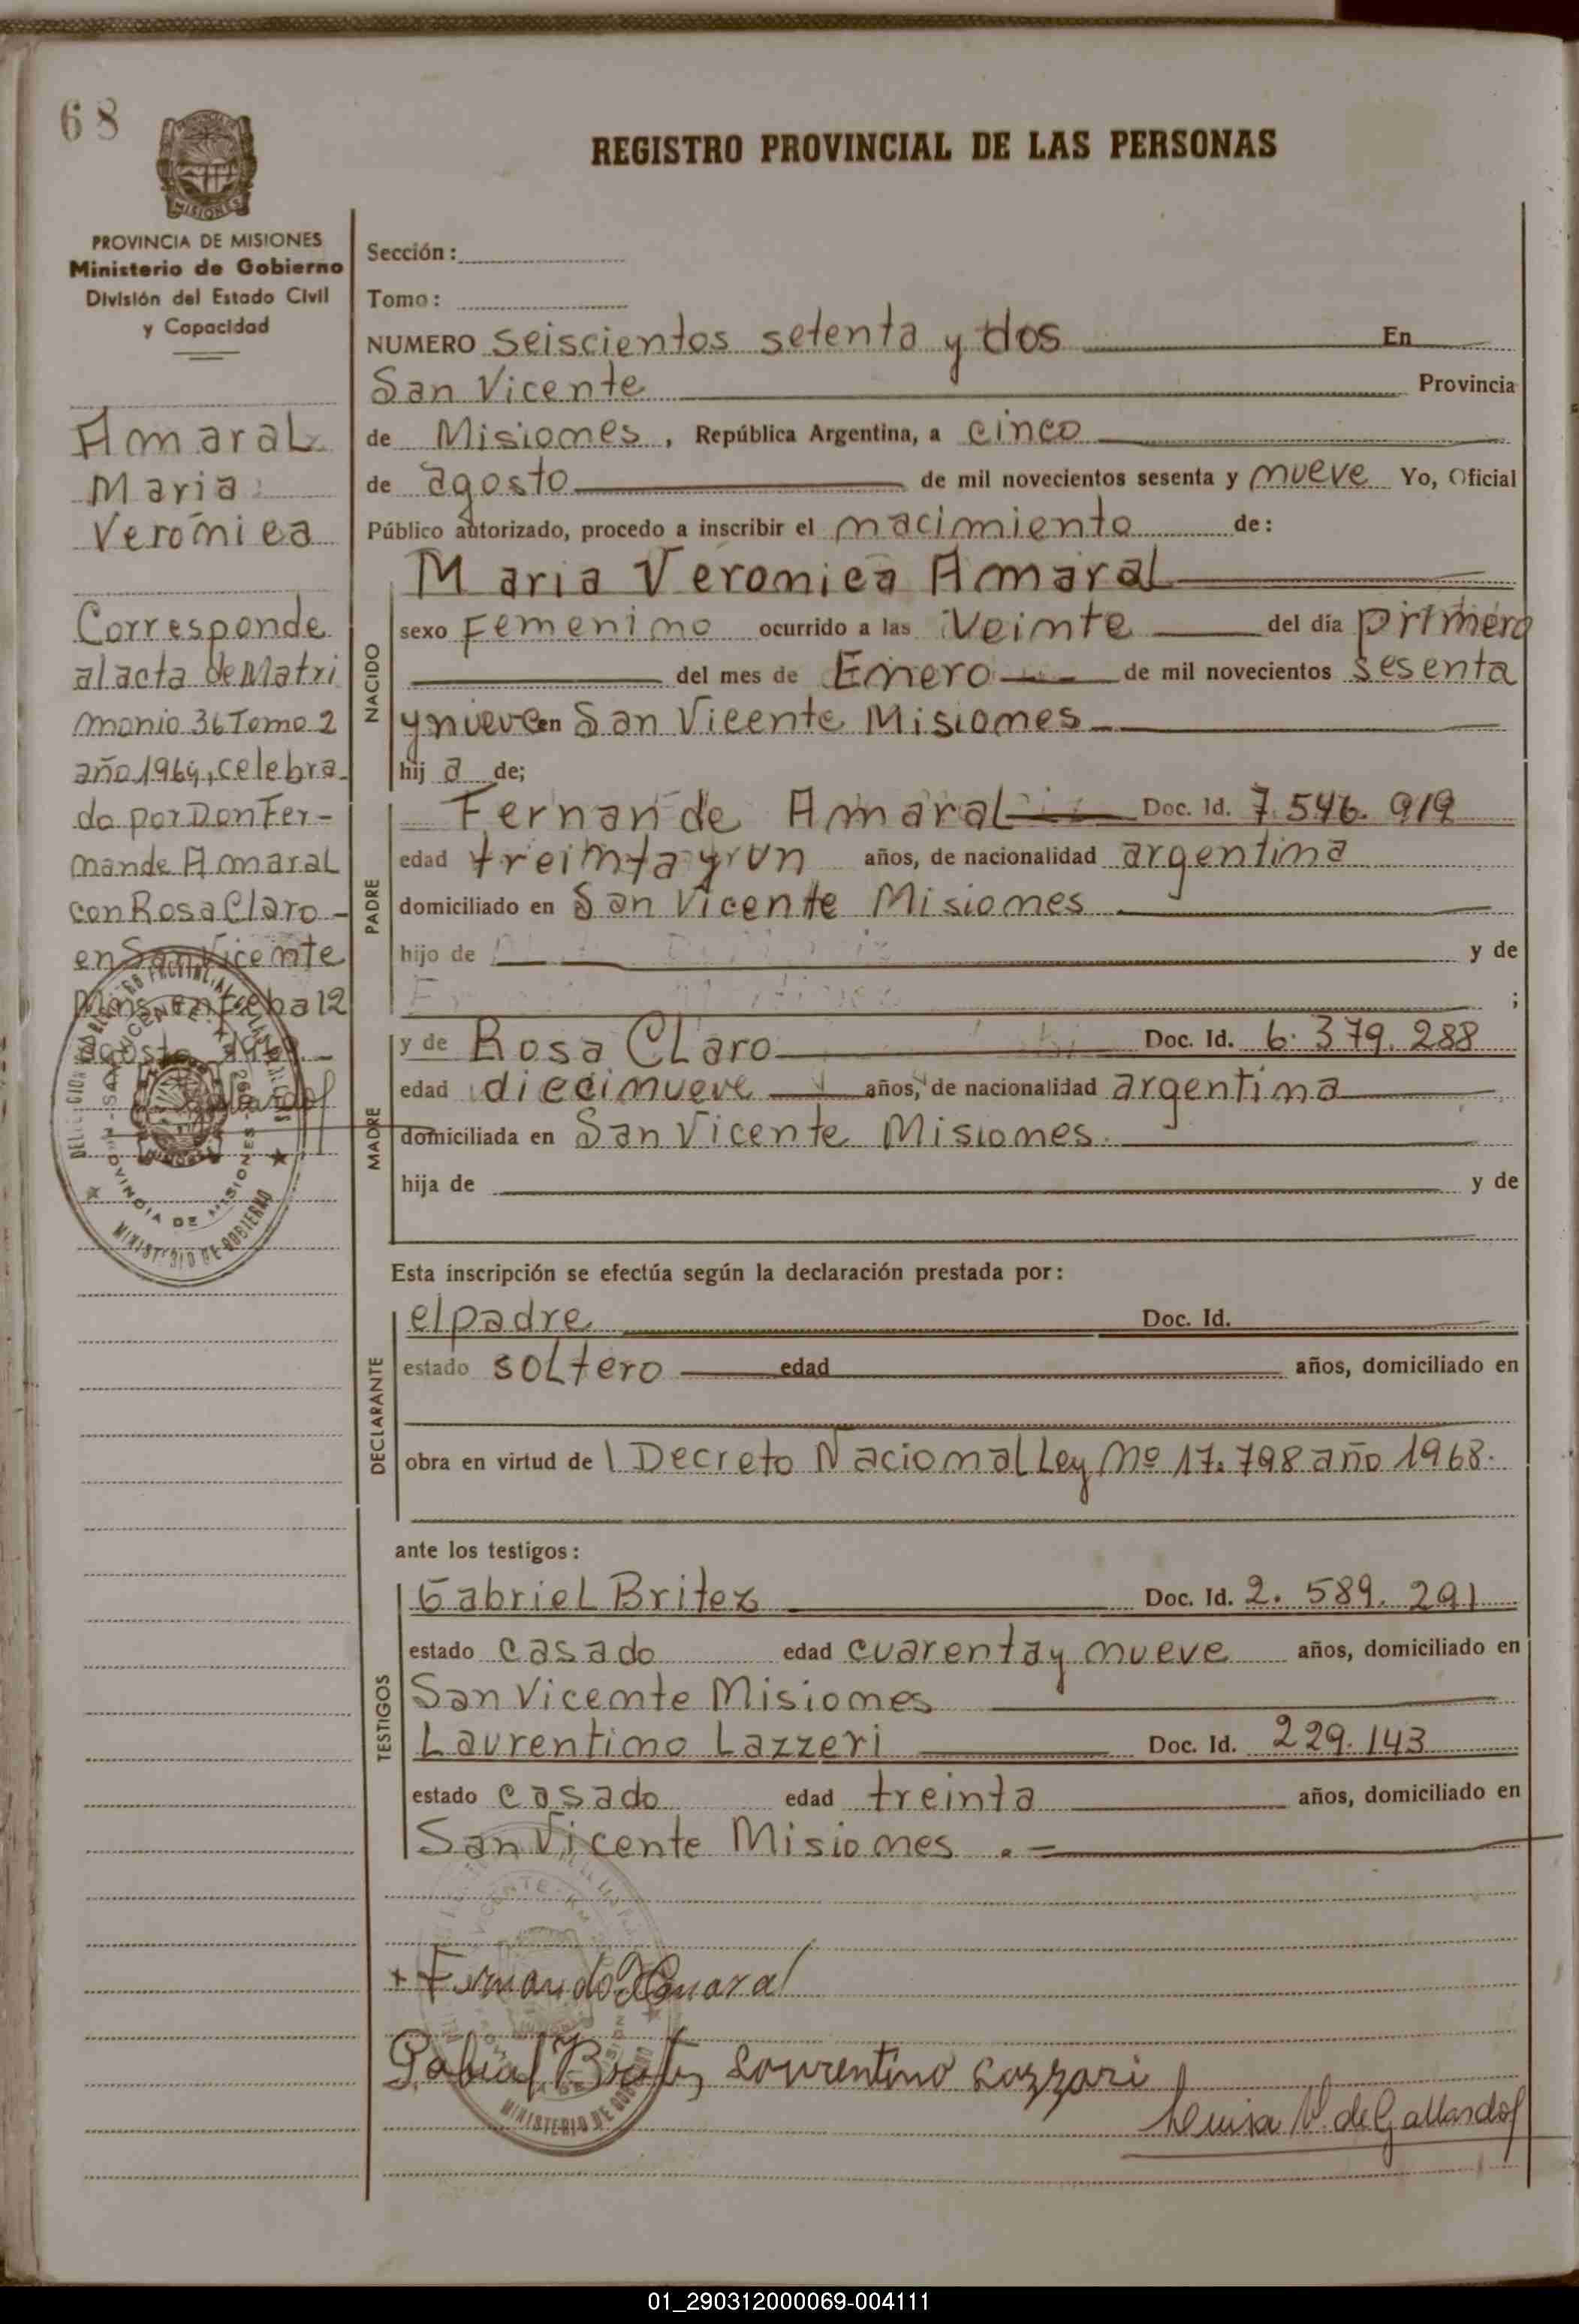 68
MISIONES
PROVINCIA DE MISIONES
Ministerio de Gobierno
División del Estado Civil
y Capacidad
Amaral
Maria
Verónica
Corresponde
al acta de Matri
monio 36 Tomo 2
celebra
do por Don Fer-
nande Amaral
con Rosa Claro -
en San Vicente
REGISTRO PROVINCIAL DE LAS PERSONAS
Sección:
Tomo:
NUMERO seiscientos setenta y dos En
San Vicente Provincia
de Misiones, República Argentina, a cinco
de agosto de mil novecientos sesenta y nueve Yo, Oficial
Público autorizado, procedo a inscribir el nacimiento de:
Maria Veronica Amaral
NACIDO
sexo Femenino ocurrido a las Veinte del día primero
del mes de Enero de mil novecientos sesenta
y nueve en San Vicente Misiones
hij a de;
PADRE
Fernande Amaral Doc. Id. 7.546.919
edad treinta y un años, de nacionalidad argentina
domiciliado en San Vicente Misiones
hijo de y de
;
MADRE
y de Rosa Claro Doc. Id. 6.379.288
edad diecinueve años, de nacionalidad argentina
domiciliada en San Vicente Misiones.
hija de y de
Esta inscripción se efectúa según la declaración prestada por:
DECLARANTE
el padre Doc. Id.
estado soltero edad años, domiciliado en
obra en virtud de l Decreto Nacional Ley Nº 17.798 año 1968.
ante los testigos:
TESTIGOS
Gabriel Britez Doc. Id. 2.589.291
estado casado edad cuarenta y nueve años, domiciliado en
San Vicente Misiones
Laurentino Lazzeri Doc. Id. 229.143
estado casado edad treinta años, domiciliado en
San Vicente Misiones . =
+ Fernando Amaral
Gabriel Britez Lourentino Lazzari
Luisa V. de Gallardo
MINISTERIO DE GOBIERNO
01_290312000069-004111